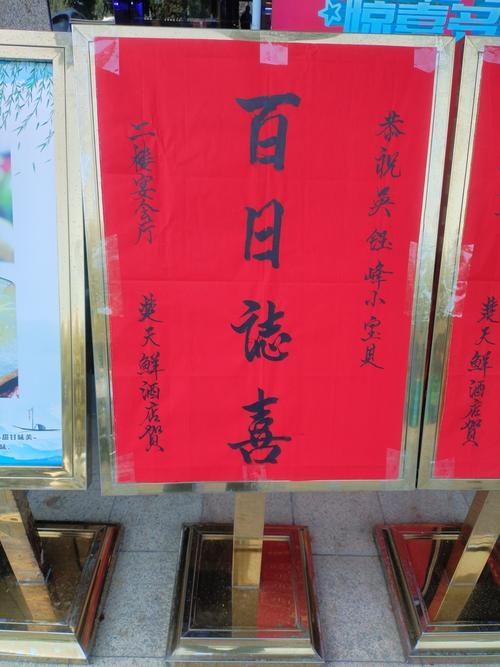 恭祝吴钰峰小宝贝
百日誌喜
二楼宴会厅
楚天鲜酒店贺
楚天鲜酒店賀
惊喜多